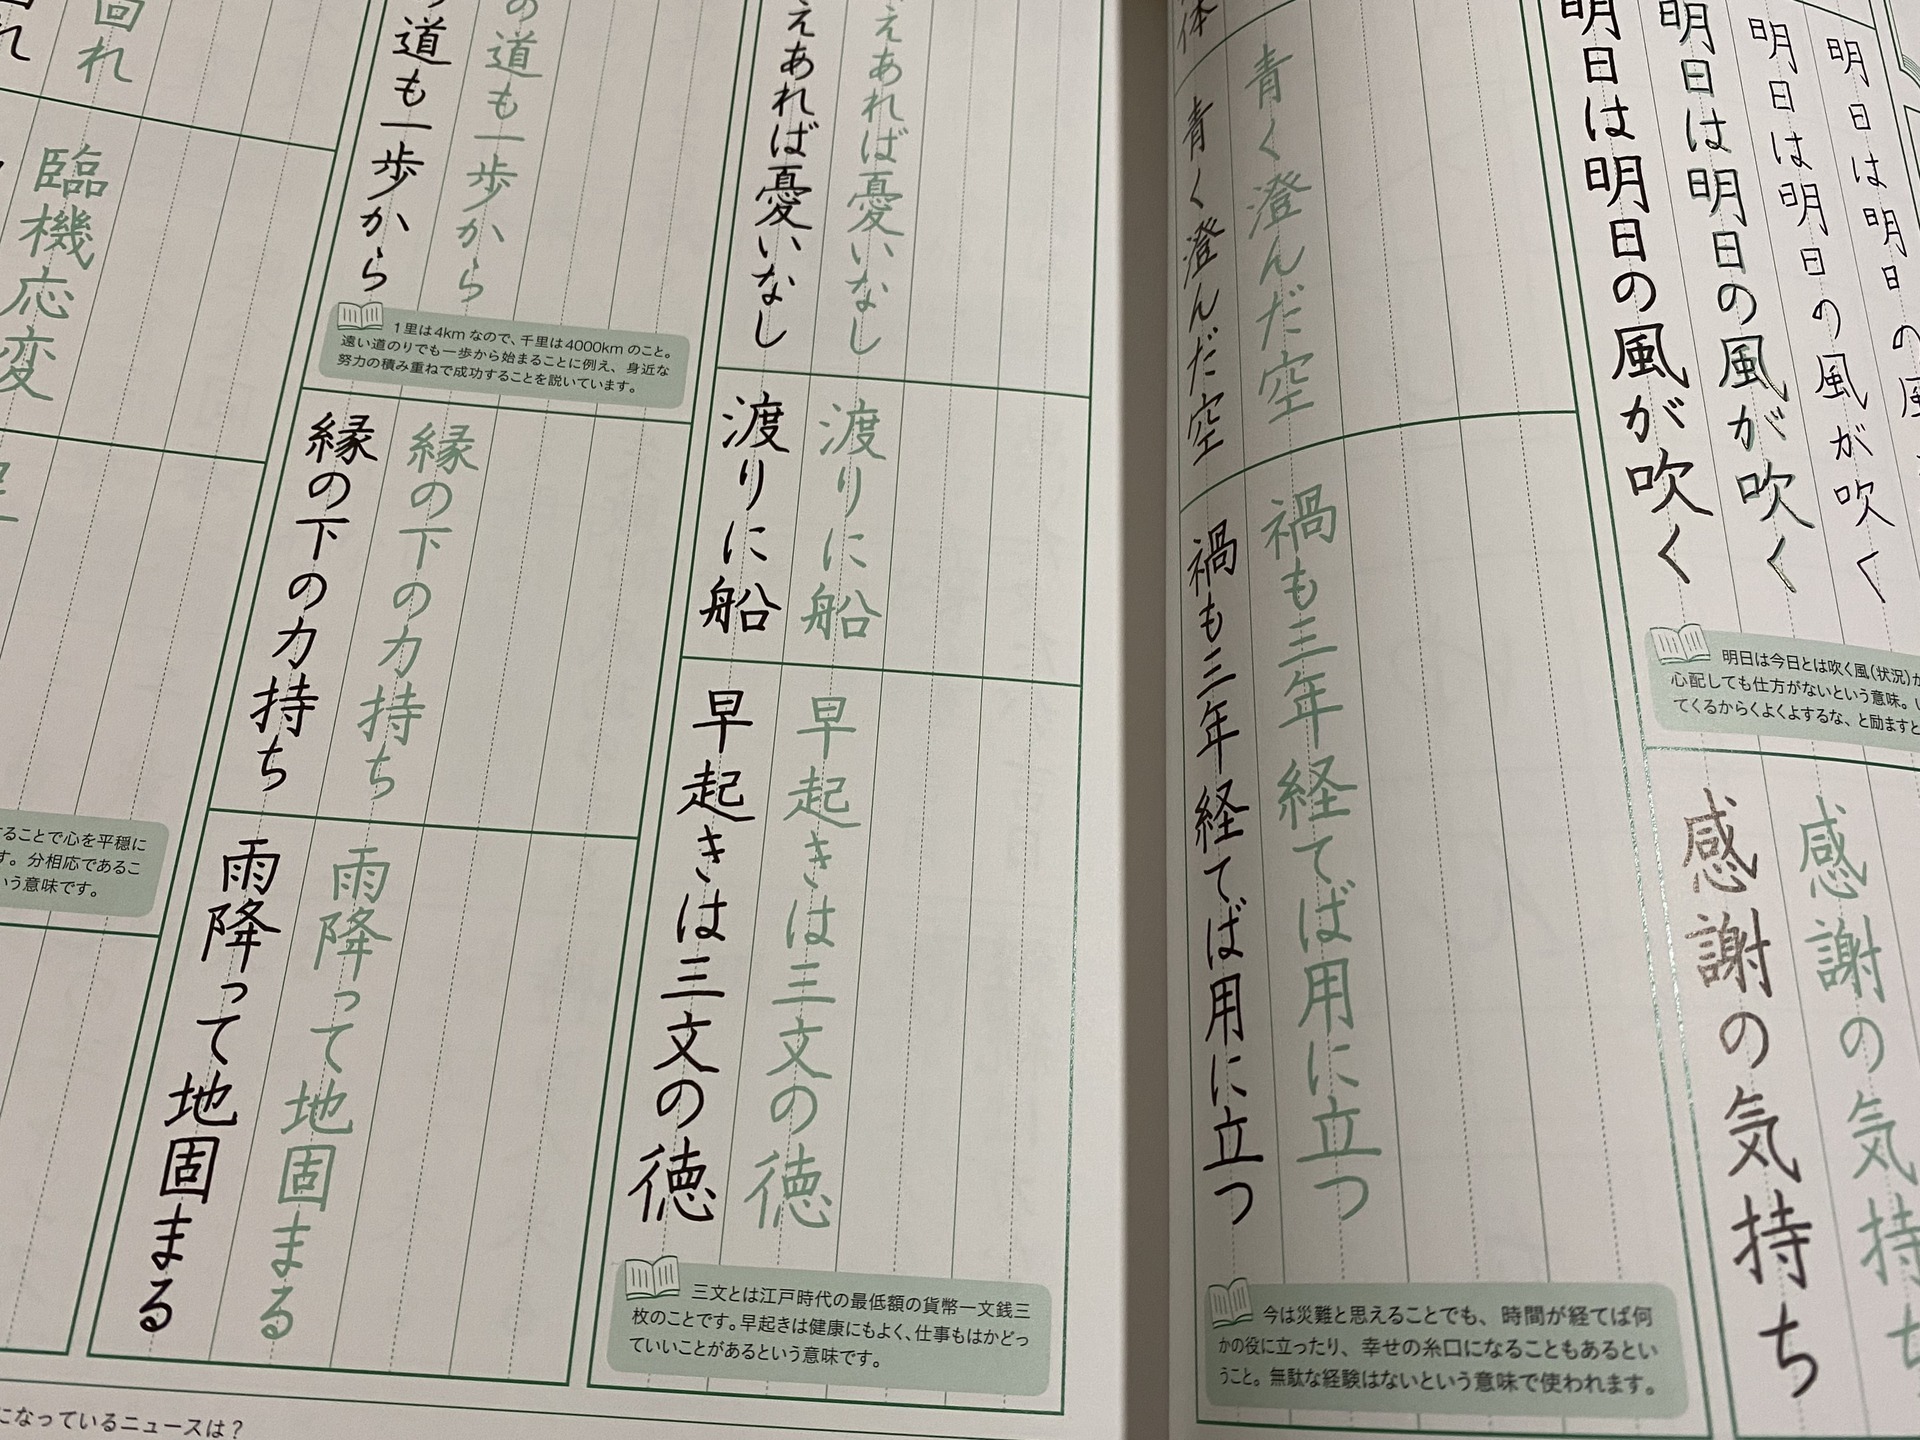 明日は明日の風が吹く
明日は明日の風が吹く
明日は明日の風が吹く
明日は明日の
明日は今日とは吹く風(状況)が
心配しても仕方がないという意味。
てくるからくよくよするな、と励ますと
感謝の気持ち
感謝の気持
青く澄んだ空
青く澄んだ空
禍も三年経てば用に立つ
禍も三年経てば用に立つ
今は災難と思えることでも、時間が経てば何
かの役に立ったり、幸せの糸口になることもあるとい
うこと。無駄な経験はないという意味で使われます。
えあれば憂いなし
えあれば憂いなし
渡りに船
渡りに船
早起きは三文の徳
早起きは三文の徳
三文とは江戸時代の最低額の貨幣一文銭三
枚のことです。早起きは健康にもよく、仕事もはかどっ
ていいことがあるという意味です。
の道も一歩から
道も一歩から
1里は4kmなので、千里は4000kmのこと。
遠い道のりでも一歩から始まることに例え、身近な
努力の積み重ねで成功することを説いています。
縁の下の力持ち
縁の下の力持ち
雨降って地固まる
雨降って地固まる
回れ
れ
臨機応変
ることで心を平穏に
す。分相応であるこ
いう意味です。
になっているニュースは？